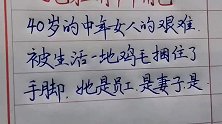 40岁的中年女人的艰难.
被生活一地鸡毛捆住了
手脚.她是员工.是妻子.是